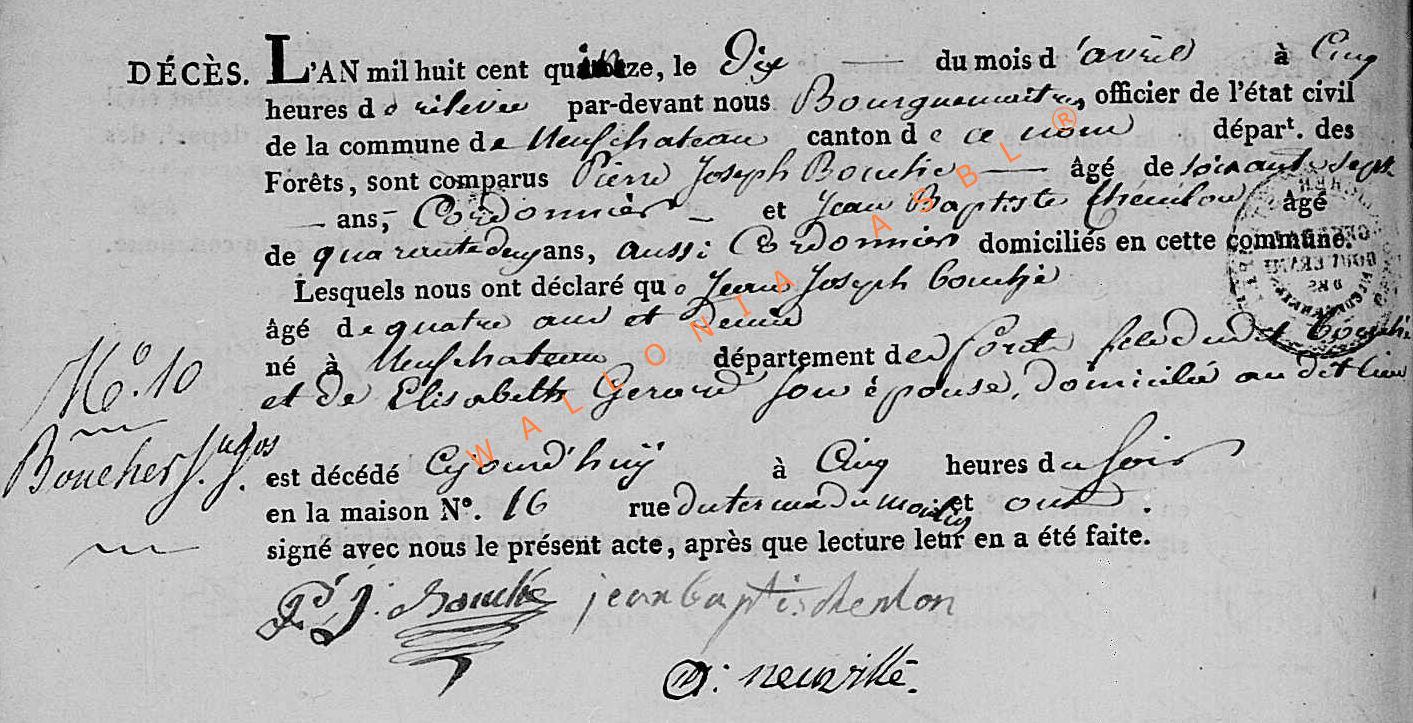 DÉCÈS. L'AN mil huit cent quinze, le Dix — du mois d'avril à Cinq
heures de relevée par-devant nous Bourguemaitre, officier de l'état civil
de la commune de Neufchateau canton de ce nom départ. des
Forêts, sont comparus Pierre Joseph Bouchè — âgé de soixante sept
— ans, Cordonnier — et Jean Baptiste âgé
de quarante deux ans, aussi Cordonnier domiciliés en cette commune.
Lesquels nous ont déclaré que Jean Joseph Bouchè
âgé de quatre ans et Demie
né à Neufchateau département des forets fils dudit Bouchè
et de Elisabeth Gerard son épouse, domiciliés au dit lieu
N.º 10
Boucher J. Jos
est décédé Cejourd'huÿ à Cinq heures du soir
en la maison Nº. 16 rue du moulin et ont.
signé avec nous le présent acte, après que lecture leur en a été faite.
P. J. Bouchè jean baptis chenlon
neuville.
WALLONIA ASBL ®